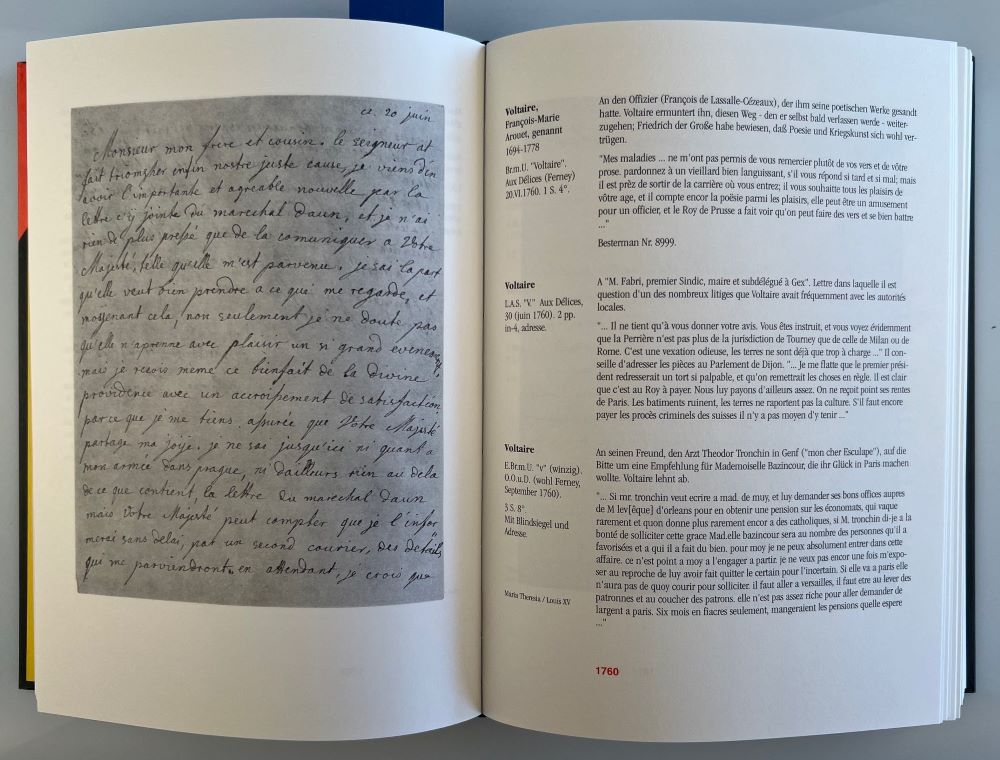 ce 20 juin
Monsieur mon frere et cousin. le seigneur at
fait triomfher enfin nostre juste cause, je viens d'en
avoir l'importante et agreable nouvelle par la
lettre c'y jointe du marechal daun, et je n'ai
rien de plus pressé que de la comuniquer a Vôtre
Majesté, telle qu'elle m'est parvenue. je sai la part
qu'elle veut bien prendre a ce qui me regarde, et
moyenant cela, non seulement je ne doute pas
qu'elle n'aprenne avec plaisir un si grand evenement,
mais je recois meme ce bienfait de la divine
providence avec un accroisement de satisfaction
parce que je me tiens assurée que Vôtre Majesté
partage ma joije. je ne sai jusqu'ici ni quant a
mon armée dans prague, ni d'ailleurs rien au dela
de ce que contient, la lettre du marechal daun
mais Vôtre Majesté peut compter que je l'infor
merai sans delai, par un second courier, des details,
qui me parviendront. en attendant, je crois que
Voltaire,
François-Marie
Arouet, genannt
1694-1778
Br.m.U. "Voltaire".
Aux Délices (Ferney)
20.VI.1760. 1 S. 4°.
An den Offizier (François de Lassalle-Cézeaux), der ihm seine poetischen Werke gesandt
hatte. Voltaire ermuntert ihn, diesen Weg - den er selbst bald verlassen werde - weiter-
zugehen; Friedrich der Große habe bewiesen, daß Poesie und Kriegskunst sich wohl ver-
trügen.
"Mes maladies ... ne m'ont pas permis de vous remercier plutôt de vos vers et de vôtre
prose. pardonnez à un vieillard bien languissant, s'il vous répond si tard et si mul; mais
il est prèz de sortir de la carrière où vous entrez; il vous souhaitte tous les plaisirs de
vôtre age, et il compte encor la poësie parmi les plaisirs, elle peut être un amusement
pour un officier, et le Roy de Prusse a fait voir qu'on peut faire des vers et se bien battre
..."
Besterman Nr. 8999.
Voltaire
L.A.S. "V." Aux Délices,
30 (juin 1760). 2 pp.
in-4, adresse.
A "M. Fabri, premier Sindic, maire et subdélégué à Gex". Lettre dans laquelle il est
question d'un des nombreux litiges que Voltaire avait fréquement avec les autorités
locales.
"... Il ne tient qu'à vous donner votre avis. Vous êtes instruit, et vous voyez évidemment
que la Perrière n'est pas plus de la jurisdiction de Tourney que de celle de Milan ou de
Rome. C'est une vexation odieuse, les terres ne sont déjà que trop à charge ..." Il con-
seille d'adresser les pièces au Parlement de Dijon. "... Je me flatte que le premier prési-
dent redresserait un tort si palpable, et qu'on remettrait les choses en règle. Il est clair
que c'est au Roy à payer. Nous luy payons d'ailleurs assez. On ne reçoit point ses rentes
de Paris. Les batiments ruinent, les terres ne raportent pas la culture. S'il faut encore
payer les procès criminels des suisses il n'y a pas moyen d'y tenir ..."
Voltaire
E.Br.m.U. "v" (winzig).
O.O.u.D. (wohl Ferney,
September 1760).
3 S. 8°.
Mit Blindsiegel und
Adresse.
An seinen Freund, den Arzt Theodor Tronchin in Genf ("mon cher Esculape"), auf die
Bitte um eine Empfehlung für Mademoiselle Bazincour, die ihr Glück in Paris machen
wollte. Voltaire lehnt ab.
"... Si mr. tronchin veut ecrire a mad. de muy, et luy demander ses bons offices aupres
de M lev[êque] d'orleans pour en obtenir une pension sur les économats, qui vaque
rarement et quon donne plus rarement encor a des catholiques, si M. tronchin di-je a la
bonté de solliciter cette grace Mad.elle bazincour sera au nombre des personnes qu'il a
favorisées et a qui il a fait du bien. pour moy je ne peux absolument entrer dans cette
affaire. ce n'est point a moy a l'engager a partir. je ne veux pas encor une fois m'expo-
ser au reproche de luy avoir fait quitter le certain pour l'incertain. Si elle va a paris elle
n'aura pas de quoy courir pour solliciter. il faut aller a versailles, il faut etre au lever des
patronnes et au coucher des patrons. elle n'est pas assez riche pour aller demander de
largent a paris. Six mois en fiacres seulement, mangeraient les pensions quelle espere
..."
Maria Theresia / Louis XV
1760